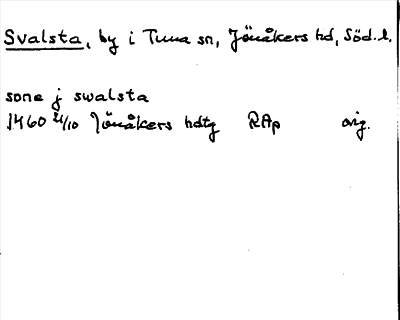 Svalsta, by i Tuna sn, Jönåkers hd, Söd.l.
sone j swalsta
1460 21/10 Jönåkers hdtg RAp orig.